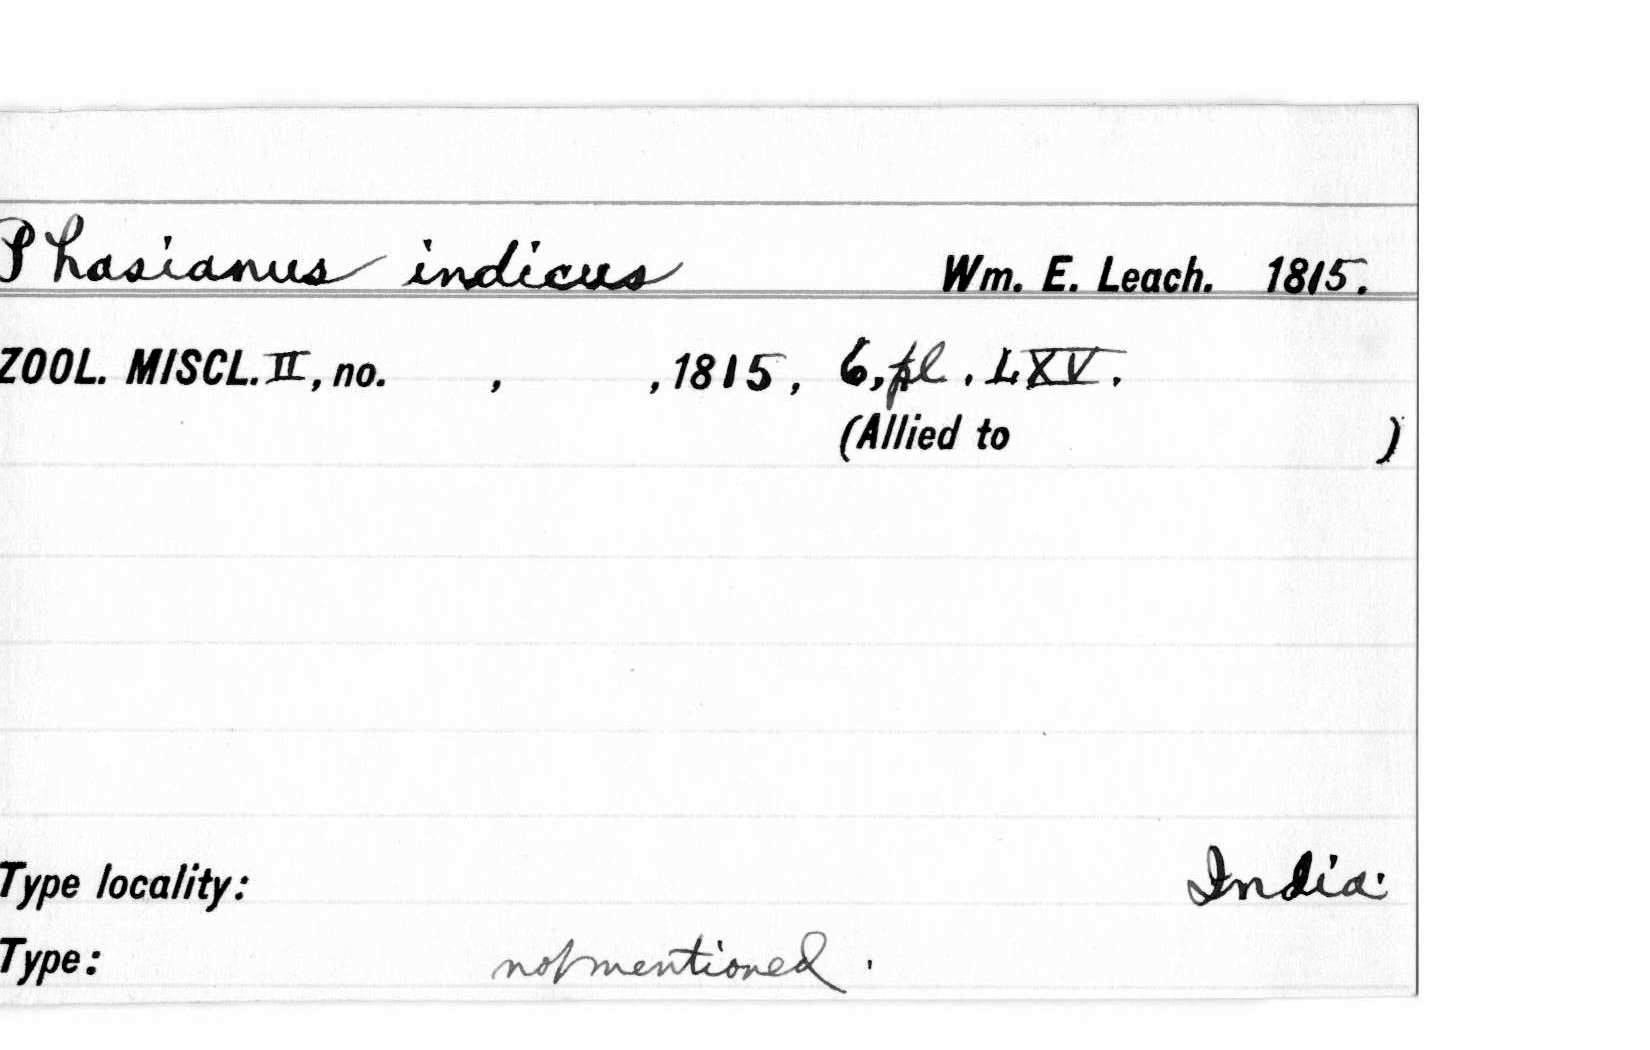 Phasianus indicus Wm. E. Leach. 1815.
ZOOL. MISCL. II, no. , , 1815, 6, pl. LXV.
(Allied to )
Type locality: India.
Type: not mentioned.